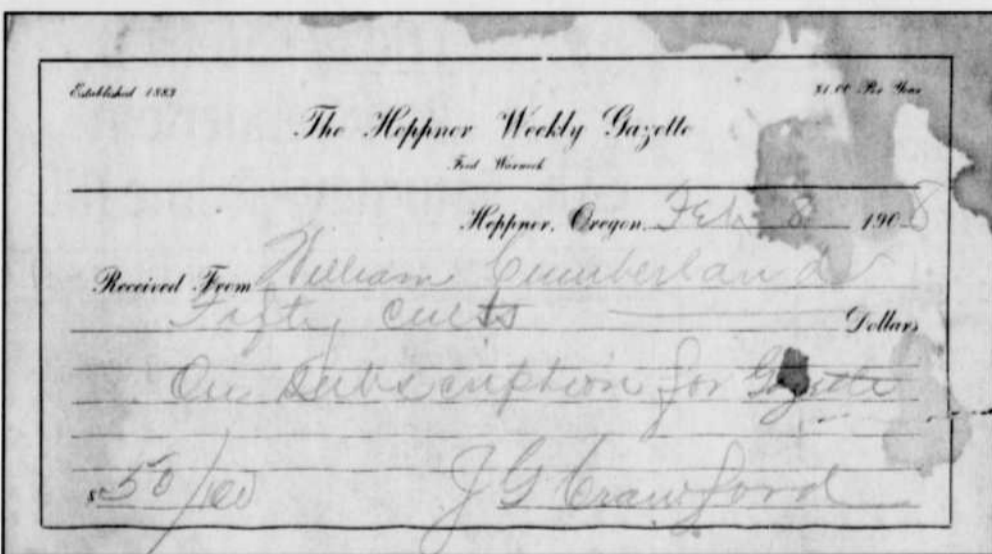 Established 1883
$1.00 Per Year
The Heppner Weekly Gazette
Fred Warnock
Heppner, Oregon, Feb 8 1908
Received From William Cumberland
Fifty cents Dollars
On Subscription for Gazette
$ 50/100 J G Crawford